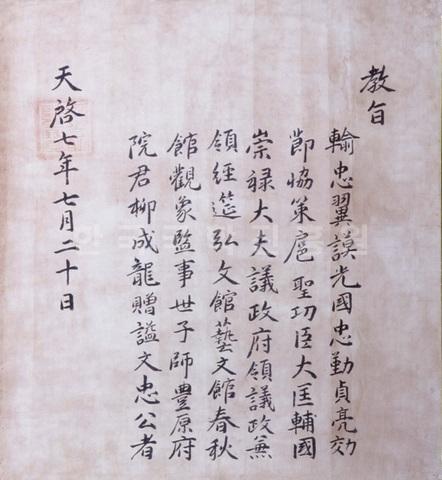 教旨
輸忠翼謨光國忠勤貞亮効
節恊策扈聖功臣大匡輔國
崇禄大夫議政府領議政兼
領經筵弘文館藝文館春秋
館觀象監事世子師豊原府
院君柳成龍贈謚文忠公者
天啓七年七月二十日